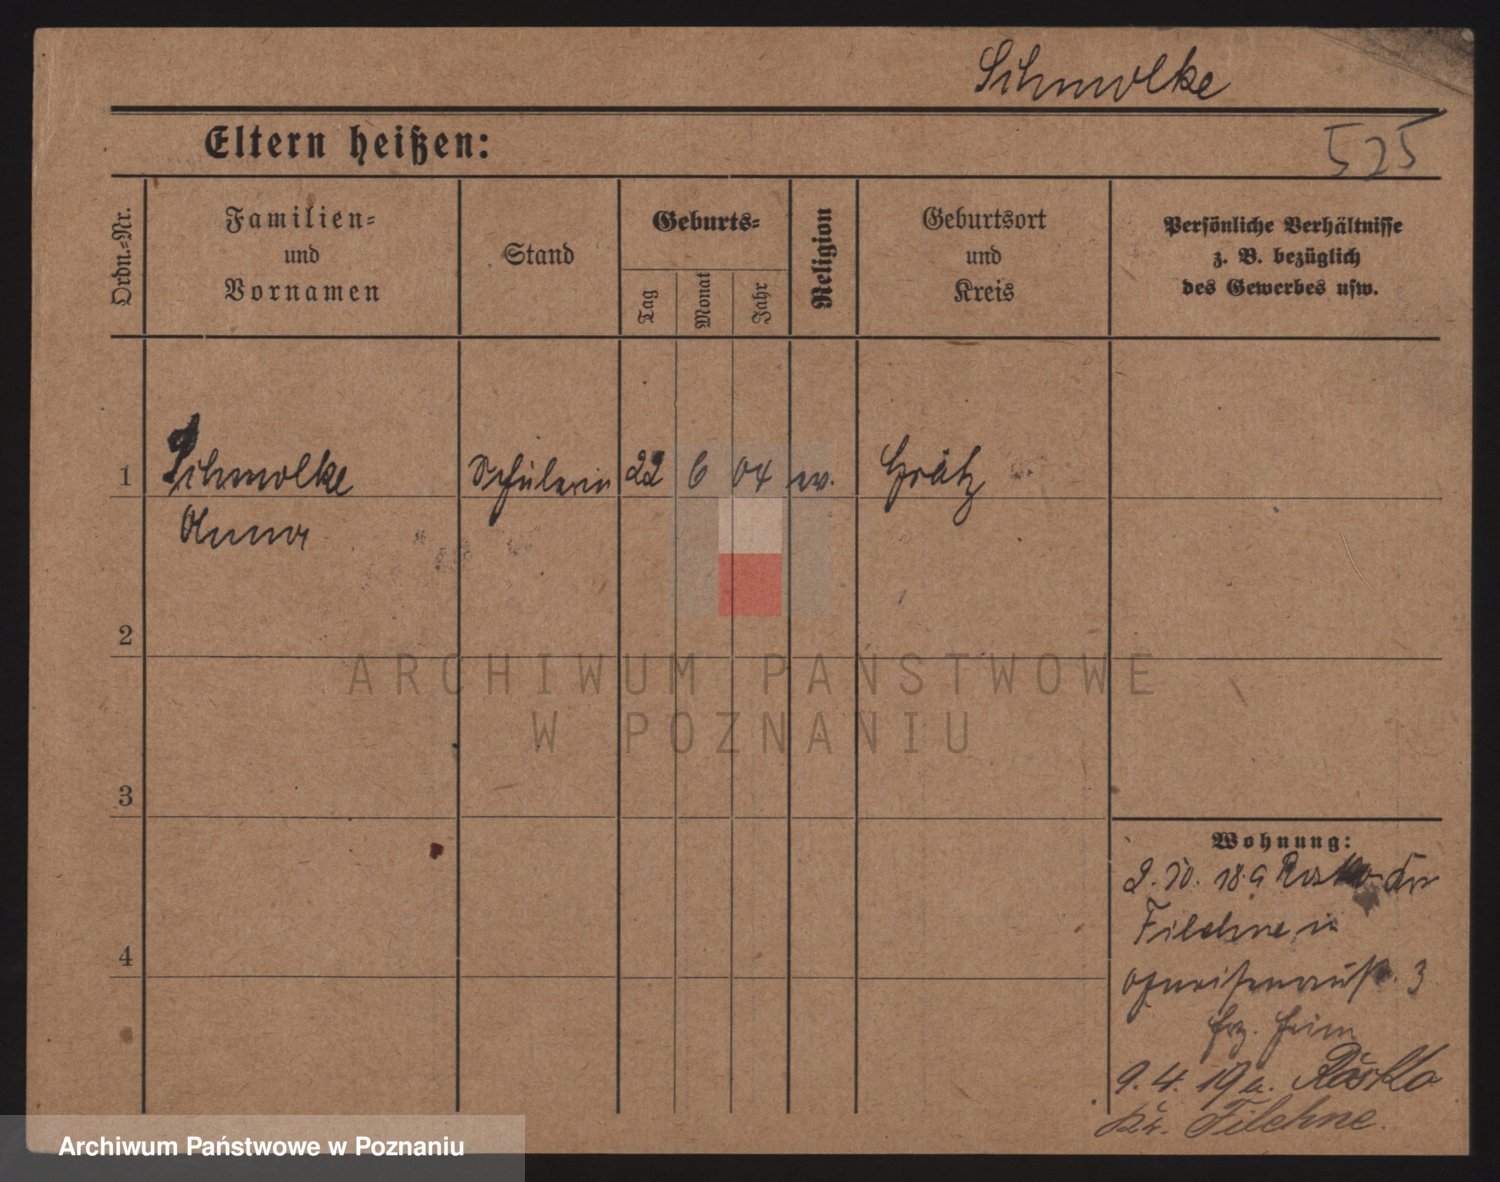 Schmolke
Eltern heißen:
525
Ordn.-Nr.
Familien-
und
Vornamen
Stand
Geburts-
Tag
Monat
Jahr
Religion
Geburtsort
und
Kreis
Persönliche Verhältnisse
z. B. bezüglich
des Gewerbes usw.
1 Schmolke Schülerin 22 6 04 ev. Grätz
Anna
2
3
4
ARCHIWUM PAŃSTWOWE
W POZNANIU
Wohnung:
2. 10. 18. a
Filehne
3
Erz. Heim
9. 4. 19 a. Rosko
Kr. Filehne.
Archiwum Państwowe w Poznaniu